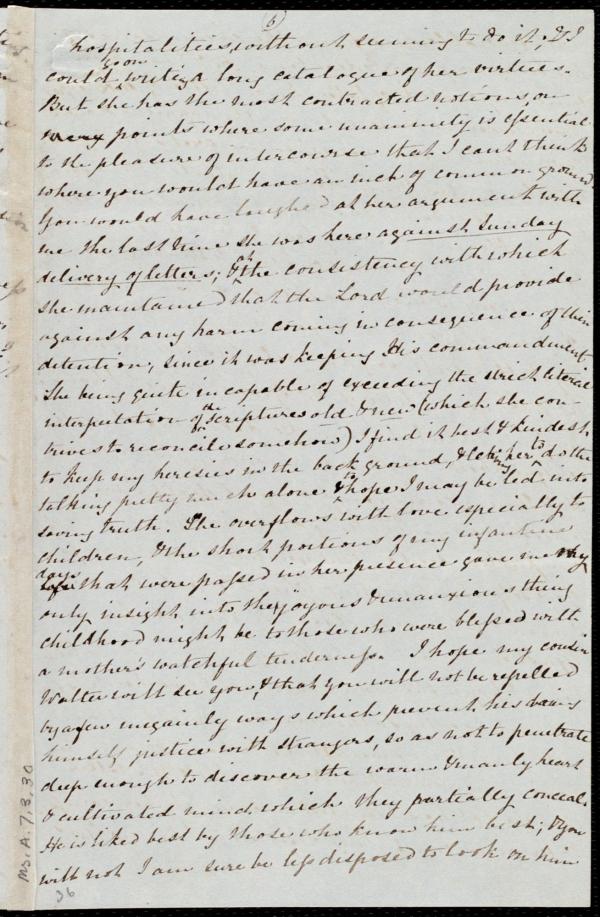 (6)
hospitalities, without seeming to do it; & I
could soon write a long catalogue of her virtues.
But she has the most contracted notions, on
many points where some unanimity is essential
to the pleasure of intercourse that I cant think
where you would have an inch of common ground.
You would have laughed at her argument with
me the last time she was here against Sunday
delivery of letters; & at the consistency with which
she maintained that the Lord would provide
against any harm coming in consequence of their
detention, since it was keeping His commandment.
She being quite incapable of exceeding the strict literal
interpretation of the Scriptures old & new (which she con-
trives to reconcile somehow) I find it best & kindest
to keep my heresies in the back ground, & letting her to do the
talking pretty much alone & to hope I may be led into
saving truth. She overflows with love especially to
children, & the short portions of my infantine
days that were passed in her presence gave me my
only insight into the joyous & unanxious thing
childhood might be to those who were blessed with
a mother's watchful tenderness. I hope my cousin
Walter will see you, & that you will not be repelled
by a few ungainly ways which prevent his doing
himself justice with strangers, so as not to penetrate
deep enough to discover the warm & manly heart
& cultivated mind which they partially conceal.
He is liked best by those who know him best; & you
will not I am sure be less disposed to look on him
Ms. A. 7. 3. 30
36